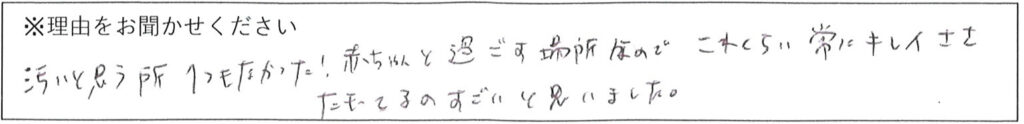 ※理由をお聞かせください
汚いと思う所1つもなかった！赤ちゃんと過ごす場所なので これくらい常にキレイさを
たもてるのすごいと思いました。